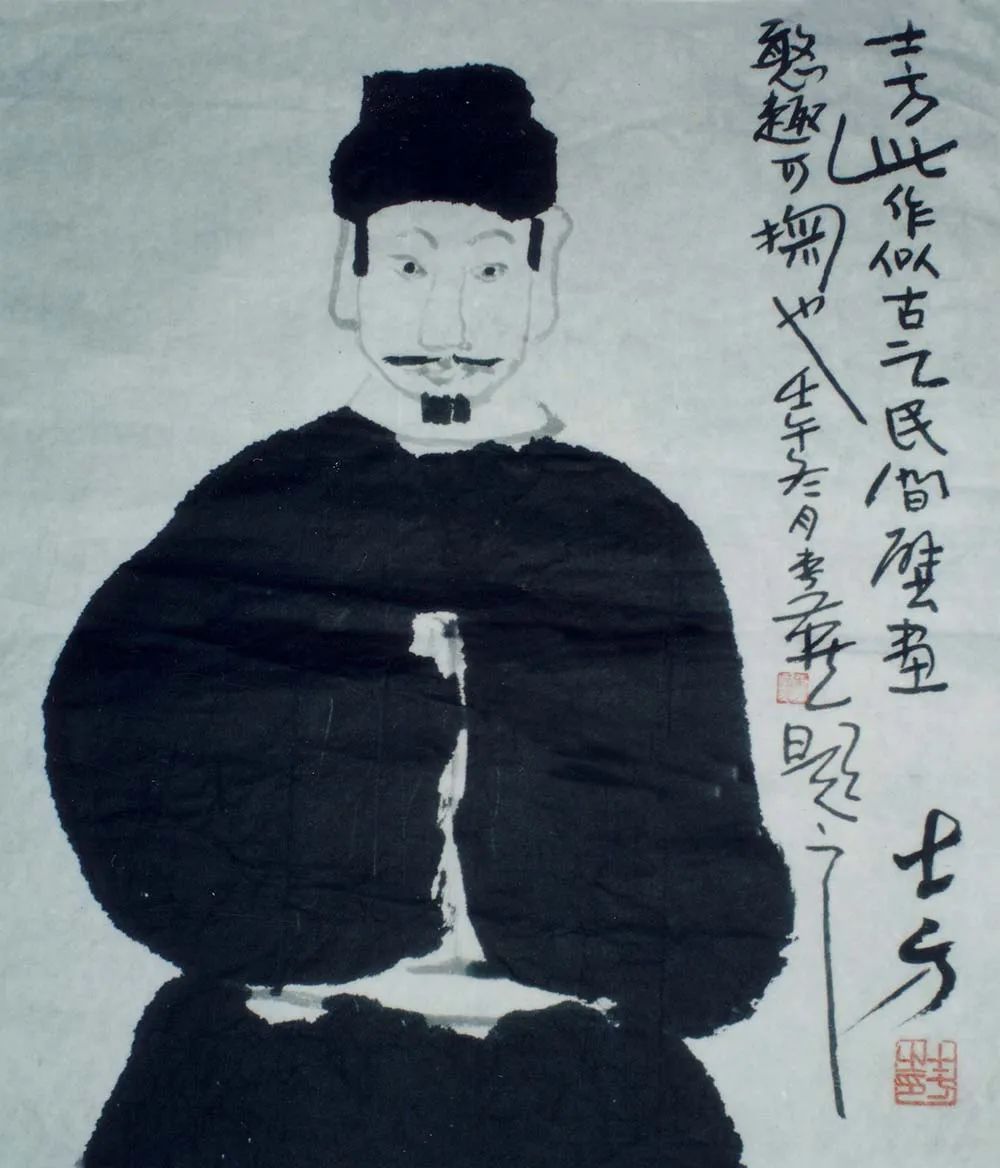 士方此作似古之民間壁畫
憨趣可掬也 壬午冬月 題之
士方
士方之印